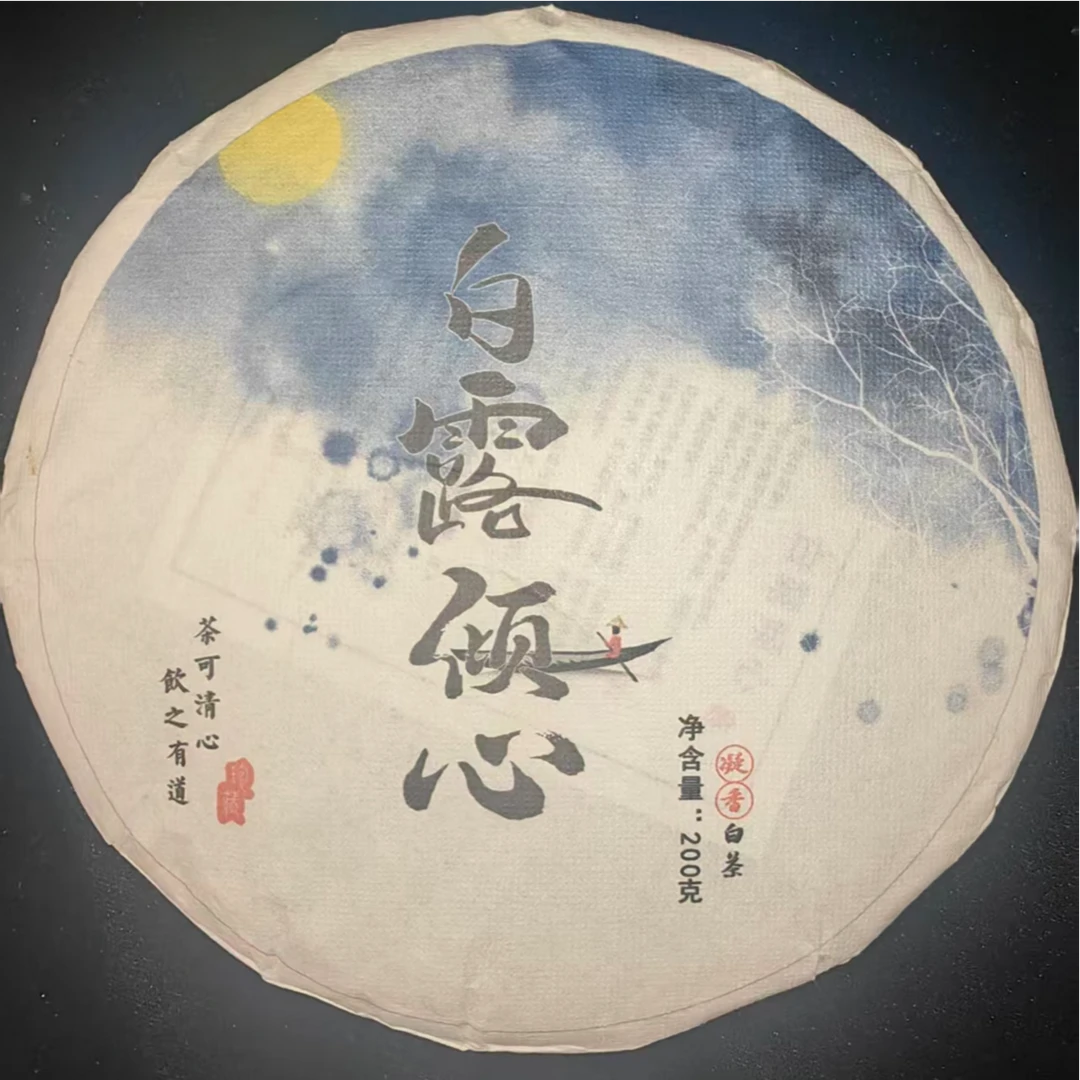 白露倾心
茶可清心
飲之有道
珍藏
凝香白茶
净含量：200克